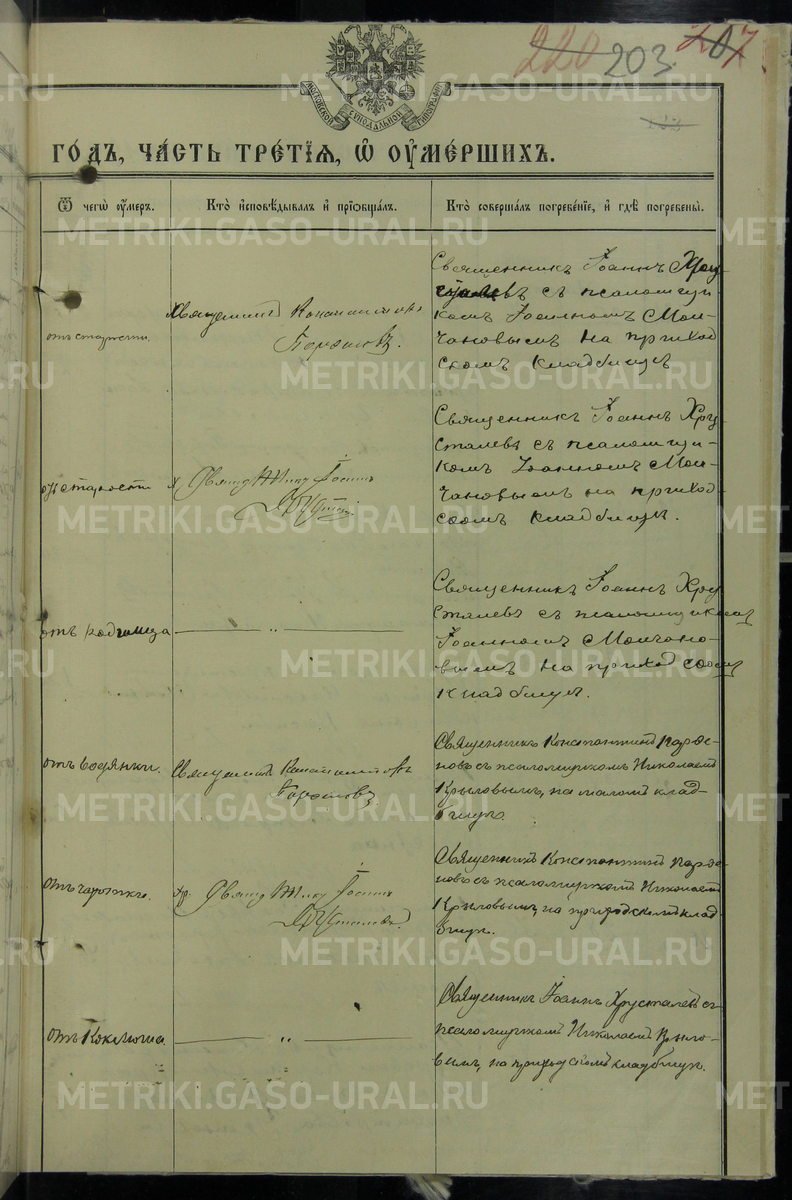 220 203. 207
МОСКОВСКОЙ СѴНОДАЛЬНОЙ ТИПОГРАФІИ
ГО́ДЪ, ЧА́СТЬ ТРЕ́ТІѦ, Ѡ ОУМЕ́РШИХЪ.
Ѿ чегѡ̀ оу́меръ.
Кто̀ и҆сповѣ́дывалъ и҆ прїѡбща́лъ.
Кто̀ соверша́лъ погребе́нїе, и҆ гдѣ̀ погребены̀.
отъ старости.
Священникъ Константинъ
Священникъ Іоаннъ Хру
съ псаломщи
комъ Іоанномъ Мол
чановымъ на приход
скомъ кладбищѣ
отъ старости
Священникъ Іоаннъ
Священникъ Іоаннъ Хру
сталевъ съ псаломщи
комъ Іоанномъ Мол
чановымъ на приход
скомъ кладбищѣ.
отъ родимца
— „ —
Священникъ Іоаннъ Хру
сталевъ съ псаломщикомъ
Іоанномъ Молчано-
вымъ на приходскомъ
кладбищѣ.
отъ водянки.
Священникъ Константинъ
Священникъ Константинъ
новъ съ псаломщикомъ Николаемъ
Крыловымъ, на малом клад-
бищѣ
отъ чахотки.
Хр. Священникъ Іоаннъ
Хрусталевъ
Священникъ Константинъ
новъ съ псаломщикомъ Николаемъ
Крыловымъ, на приходскомъ клад
бищѣ.
отъ коклюша.
— „ —
Священникъ Іоаннъ Хрусталевъ съ
псаломщикомъ Николаемъ Крыло-
вымъ, на приходскомъ кладбищѣ.
METRIKI.GASO-URAL.RU